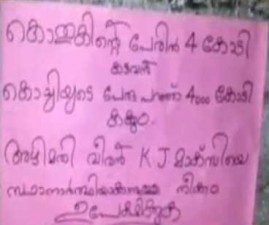 കൊതുകിന്റെ പേരിൽ 4 കോടി
കടവൻ
കൊച്ചിയുടെ പേരു പറഞ്ഞ് 4000 കോടി
കക്കും.
അഴിമതി വീരൻ K.J മാക്സിയെ
സ്ഥാനാർത്ഥിയാക്കാനുള്ള നീക്കം
ഉപേക്ഷിക്കുക